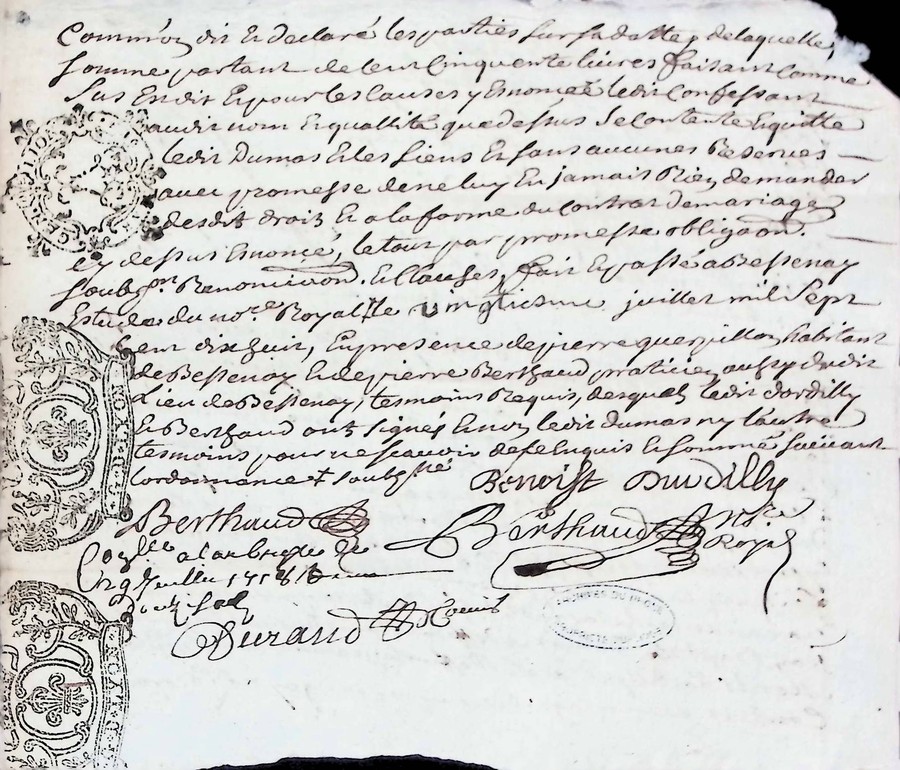 Comm'on dit et declaré les parties sur sa datte, de laquelle
somme partant de cent cinquante livres faisant comme
sus est dit et pour les causes y enoncée ledit confessant
audit nom et quallité que dessus se contente et quitte
ledit dumas et les siens et sans aucunes Reserves
avec promesse de ne luy en jamais Rien demander
desdit droit et a la forme du contrat de mariage
cy dessus enoncé, le tout par promesse obliga̅o̅n̅.
soub̅m̅o̅n̅ Renonciation et clauses, fait et passé a Bessenay
Estude du no.re Royal le vingtiesme juillet mil sept
Cent dix huit, En presence de pierre querpillon, habitant
de Bessenay et de pierre Berthaud praticien aussy dudit
Lieu de Bessenay, tesmoins Requis, desquels ledit dordilly
et Berthaud ont signés et non ledit dumas ny l'autre
tesmoins pour ne scavoir de ce Enquis et sommés suivant
lordonnance soub.né
Benoist Durdilly
Berthaud
Berthaud
no.re
Royal
juillet 1718
Durand Commis